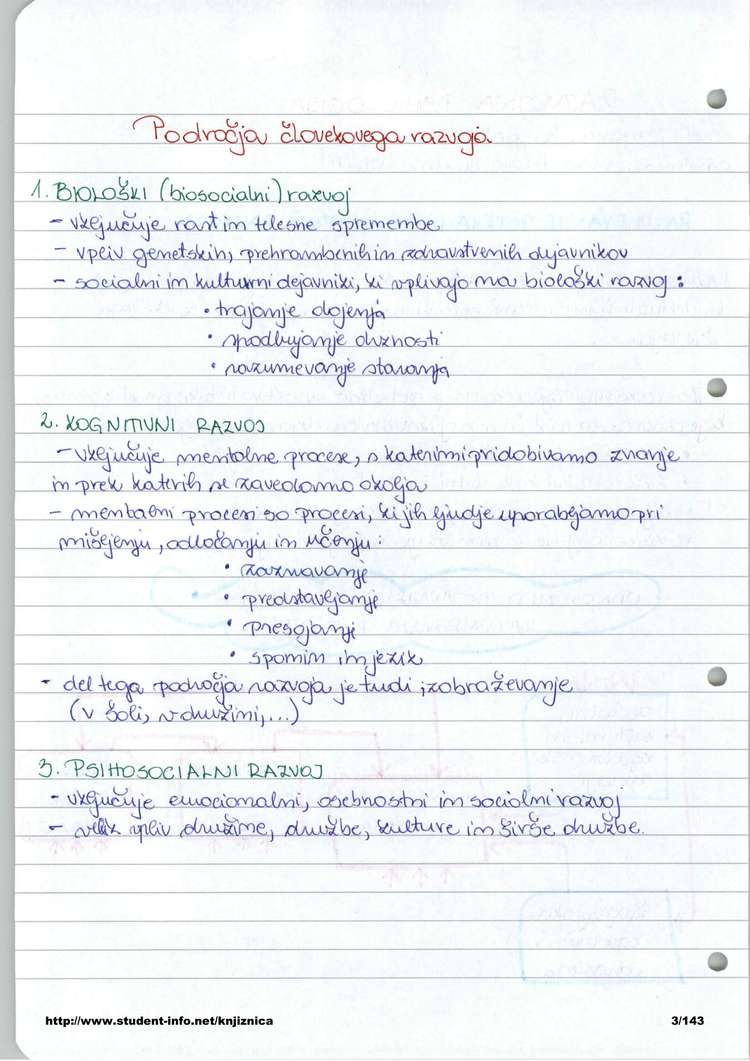 Področja človekovega razvoja
1. BIOLOŠKI (biosocialni) razvoj
- vključuje rast in telesne spremembe
- vpliv genetskih, prehrambenih in zdravstvenih dejavnikov
- socialni in kulturni dejavniki, ki vplivajo na biološki razvoj :
• trajanje dojenja
• spodbujanje družnosti
• razumevanje staranja
2. KOGNITIVNI RAZVOJ
- vključuje mentalne procese, s katerimi pridobivamo znanje
in prek katerih se zavedamo okolja
- mentalni procesi so procesi, ki jih ljudje uporabljamo pri
mišljenju, odločanju in učenju :
• zaznavanje
• predstavljanje
• presojanje
• spomin in jezik
- del tega področja razvoja je tudi izobraževanje
(v šoli, v družini, ...)
3. PSIHOSOCIALNI RAZVOJ
- vključuje emocionalni, osebnostni in socialni razvoj
- velik vpliv družine, družbe, kulture in širše družbe.
http://www.student-info.net/knjiznica 3/143